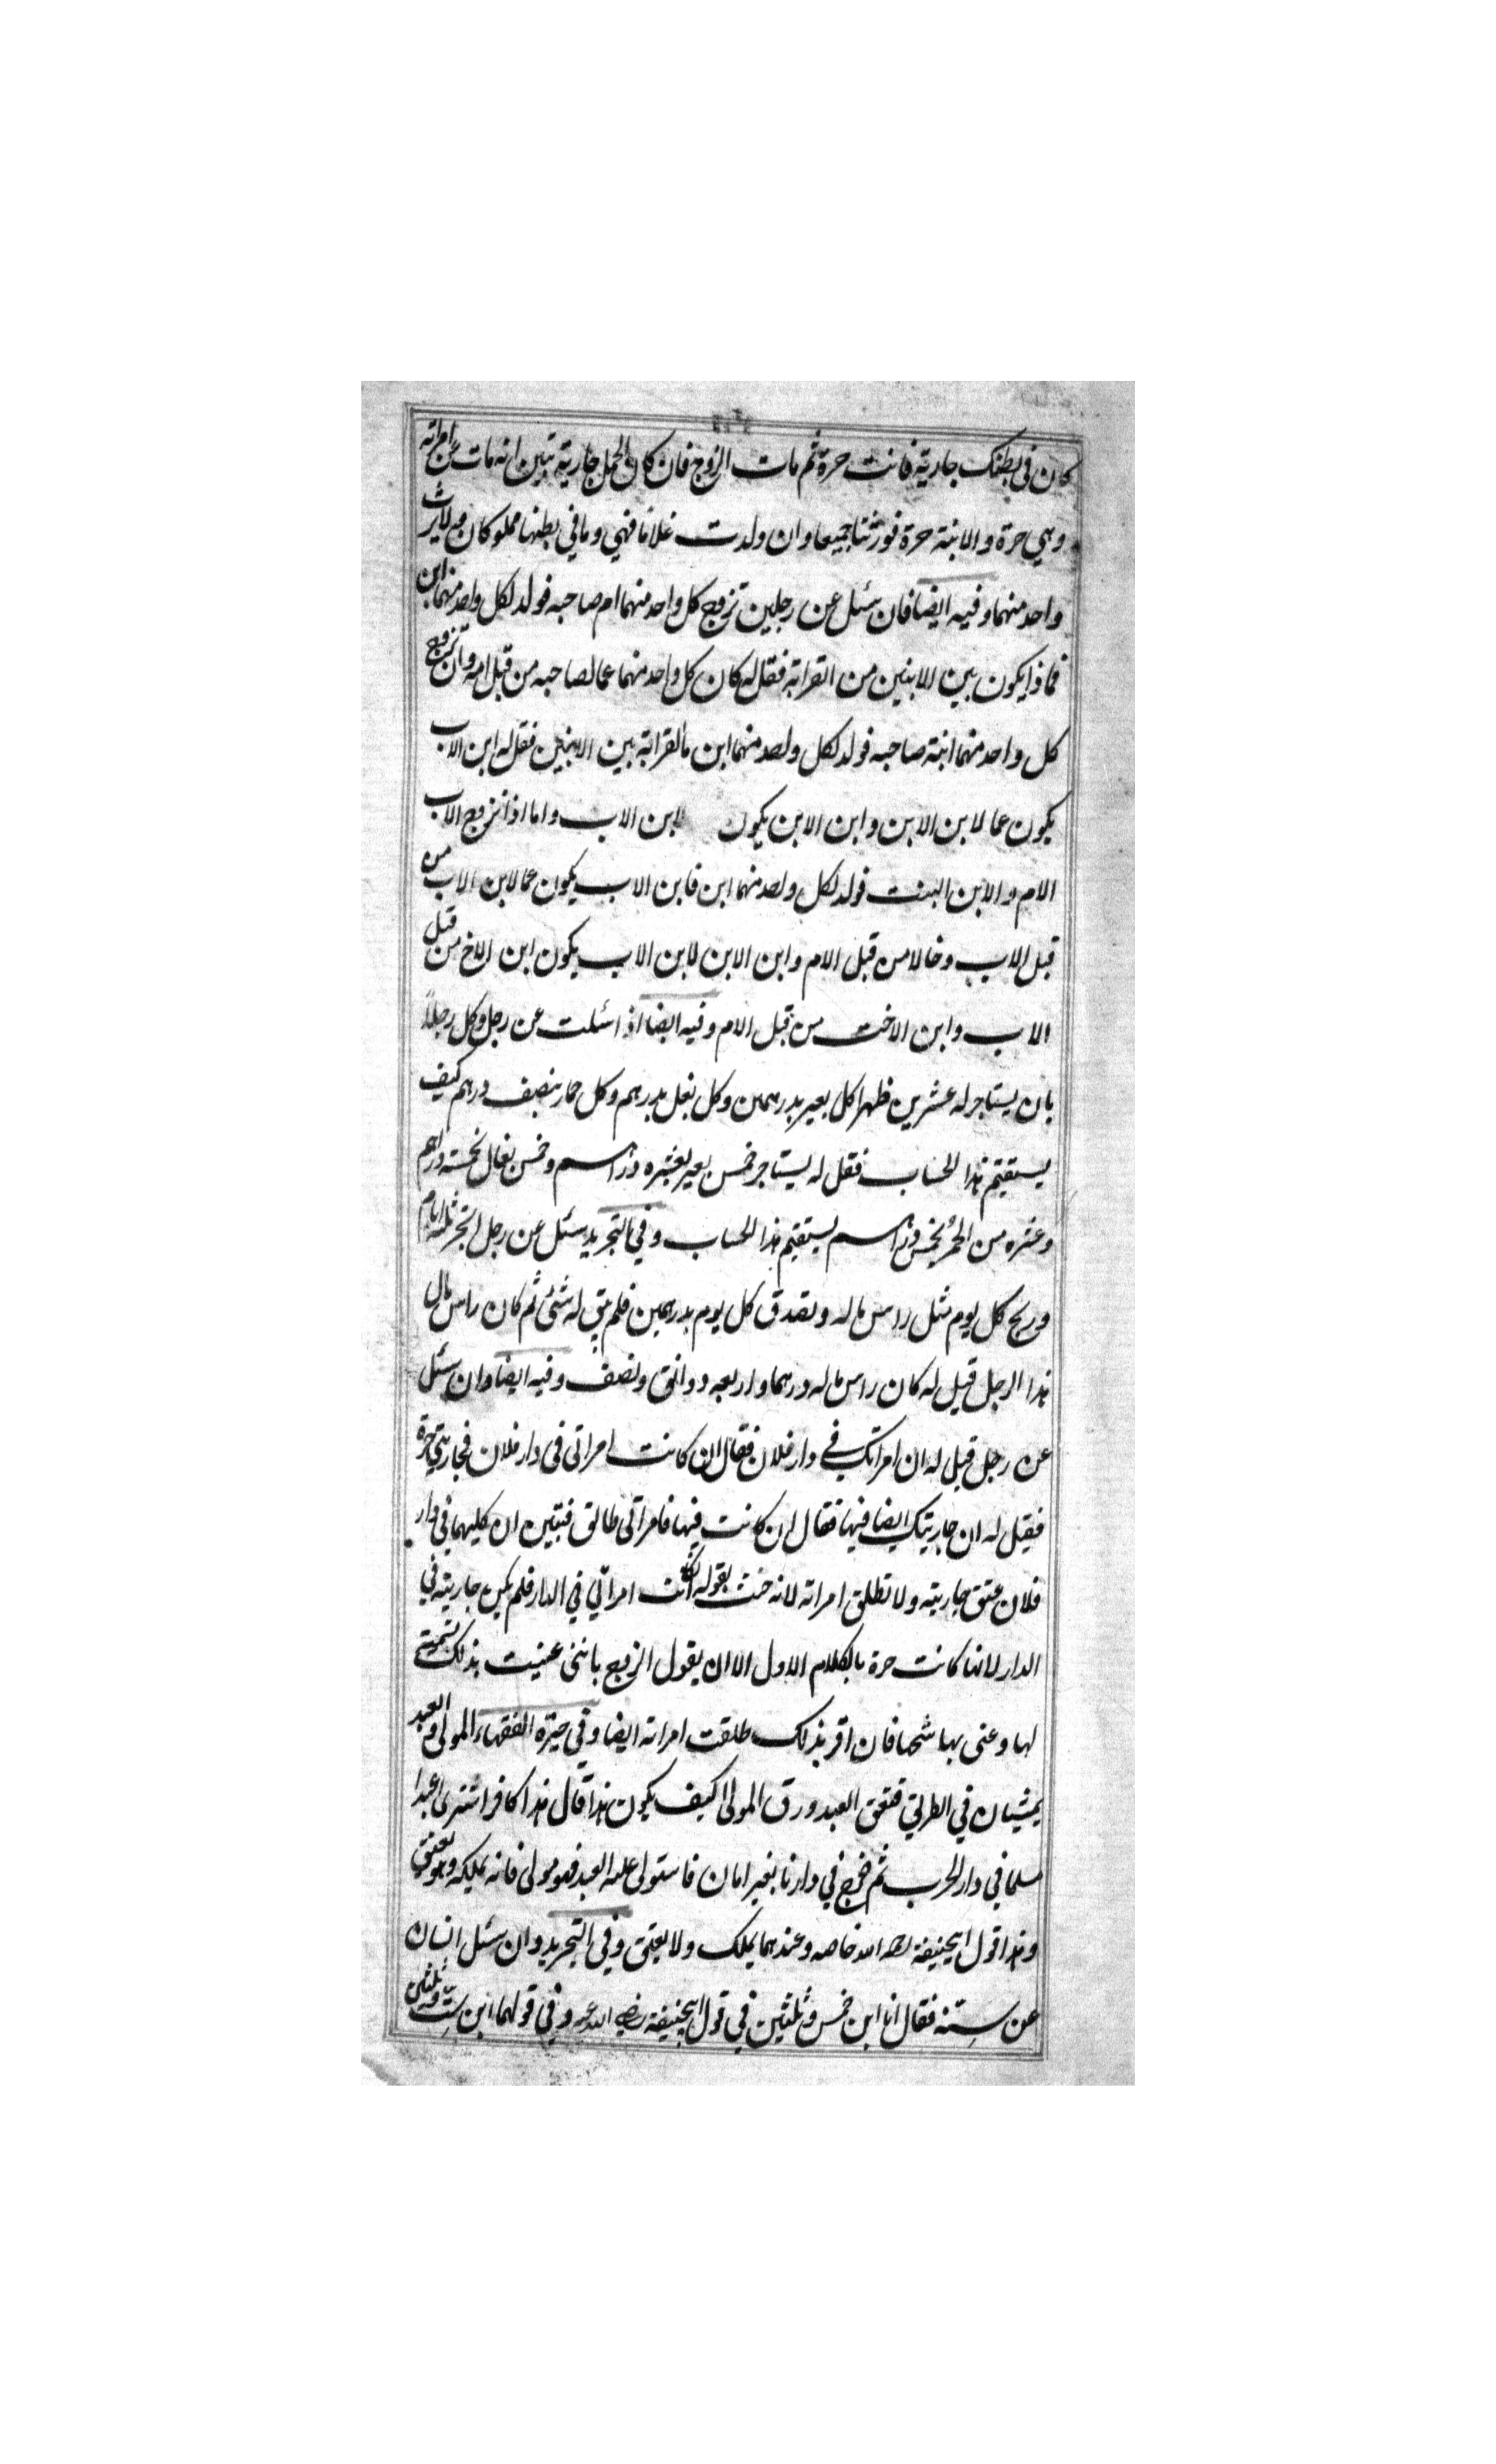 كان فى بطنك جارية فانت حرة ثم مات الزوج فان كان الحمل جارية تبين انه مات عن امراته
وهي حرة والابنة حرة فورثتا جميعا وان ولدت غلاما فهي وما في بطنها مملوكان ولا يرث
واحد منهما وفيه ايضا فان سئل عن رجلين تزوج كل واحد منهما ام صاحبه فولد لكل واحد منهما ابن
فماذا يكون بين الابنين من القرابة فقل له كان كل واحد منهما عما لصاحبه من قبل امه وان تزوج
كل واحد منهما ابنة صاحبه فولد لكل واحد منهما ابن ما القرابة بين الابنين فقل له ابن الاب
يكون عما لابن الابن وابن الابن يكون لابن الاب واما اذا تزوج الاب
الام والابن البنت فولد لكل واحد منهما ابن فابن الاب يكون عما لابن الاب من
قبل الاب وخالا من قبل الام وابن الابن لابن الاب يكون ابن الاخ من قبل
الاب وابن الاخت من قبل الام وفيه ايضا اذا سئلت عن رجل وكل رجلا
بان يستاجر له عشرين ظهرا كل بعير بدرهمين وكل بغل بدرهم وكل حمار بنصف درهم كيف
يستقيم هذا الحساب فقل له يستاجر خمس بعير بعشره دراهم وخمس بغال بخمسة دراهم
وعشره من الحمر بخمس دراهم يستقيم هذا الحساب وفي التجريد سئل عن رجل اتجر ثلثة ايام
وربح كل يوم مثل راس ماله وتصدق كل يوم بدرهمين فلم يبق له شئ ثم كان راس مال
هذا الرجل قيل له كان راس ماله درهما واربعه دوانق ونصف وفيه ايضا وان سئل
عن رجل قيل له ان امراتك في دار فلان فقال ان كانت امراتى فى دار فلان فجاريتي حرة
فقيل له ان جاريتك ايضا فيها فقال ان كانت فيها فامراتى طالق فتبين ان كليهما في دار
فلان عتق جاريته ولا تطلق امراته لانه حنث بقوله ان كانت امراتي في الدار فلم يكن جاريته في
الدار لانها كانت حرة بالكلام الاول الا ان يقول الزوج باننى عنيت بذلك تسميتي
لها وعنى بها شخصا فان اقر بذلك طلقت امراته ايضا وفي حيرة الفقهاء المولى والعبد
يمشيان في الطريق فعتق العبد ورق المولى كيف يكون هذا قال هذا كافر اشترى عبدا
مسلما في دار الحرب ثم خرج في دارنا بغير امان فاستولى عليه العبد فهو مولى فانه يملكه وهو يعتق
وهذا قول ابيحنيفة رحمه الله خاصه وعندهما يملك ولا يعتق وفي التجريد وان سئل انسان
عن سنه فقال انا ابن خمس وثلثين في قول ابيحنيفة رضي الله عنه وفي قولهما ابن ست وثلثين